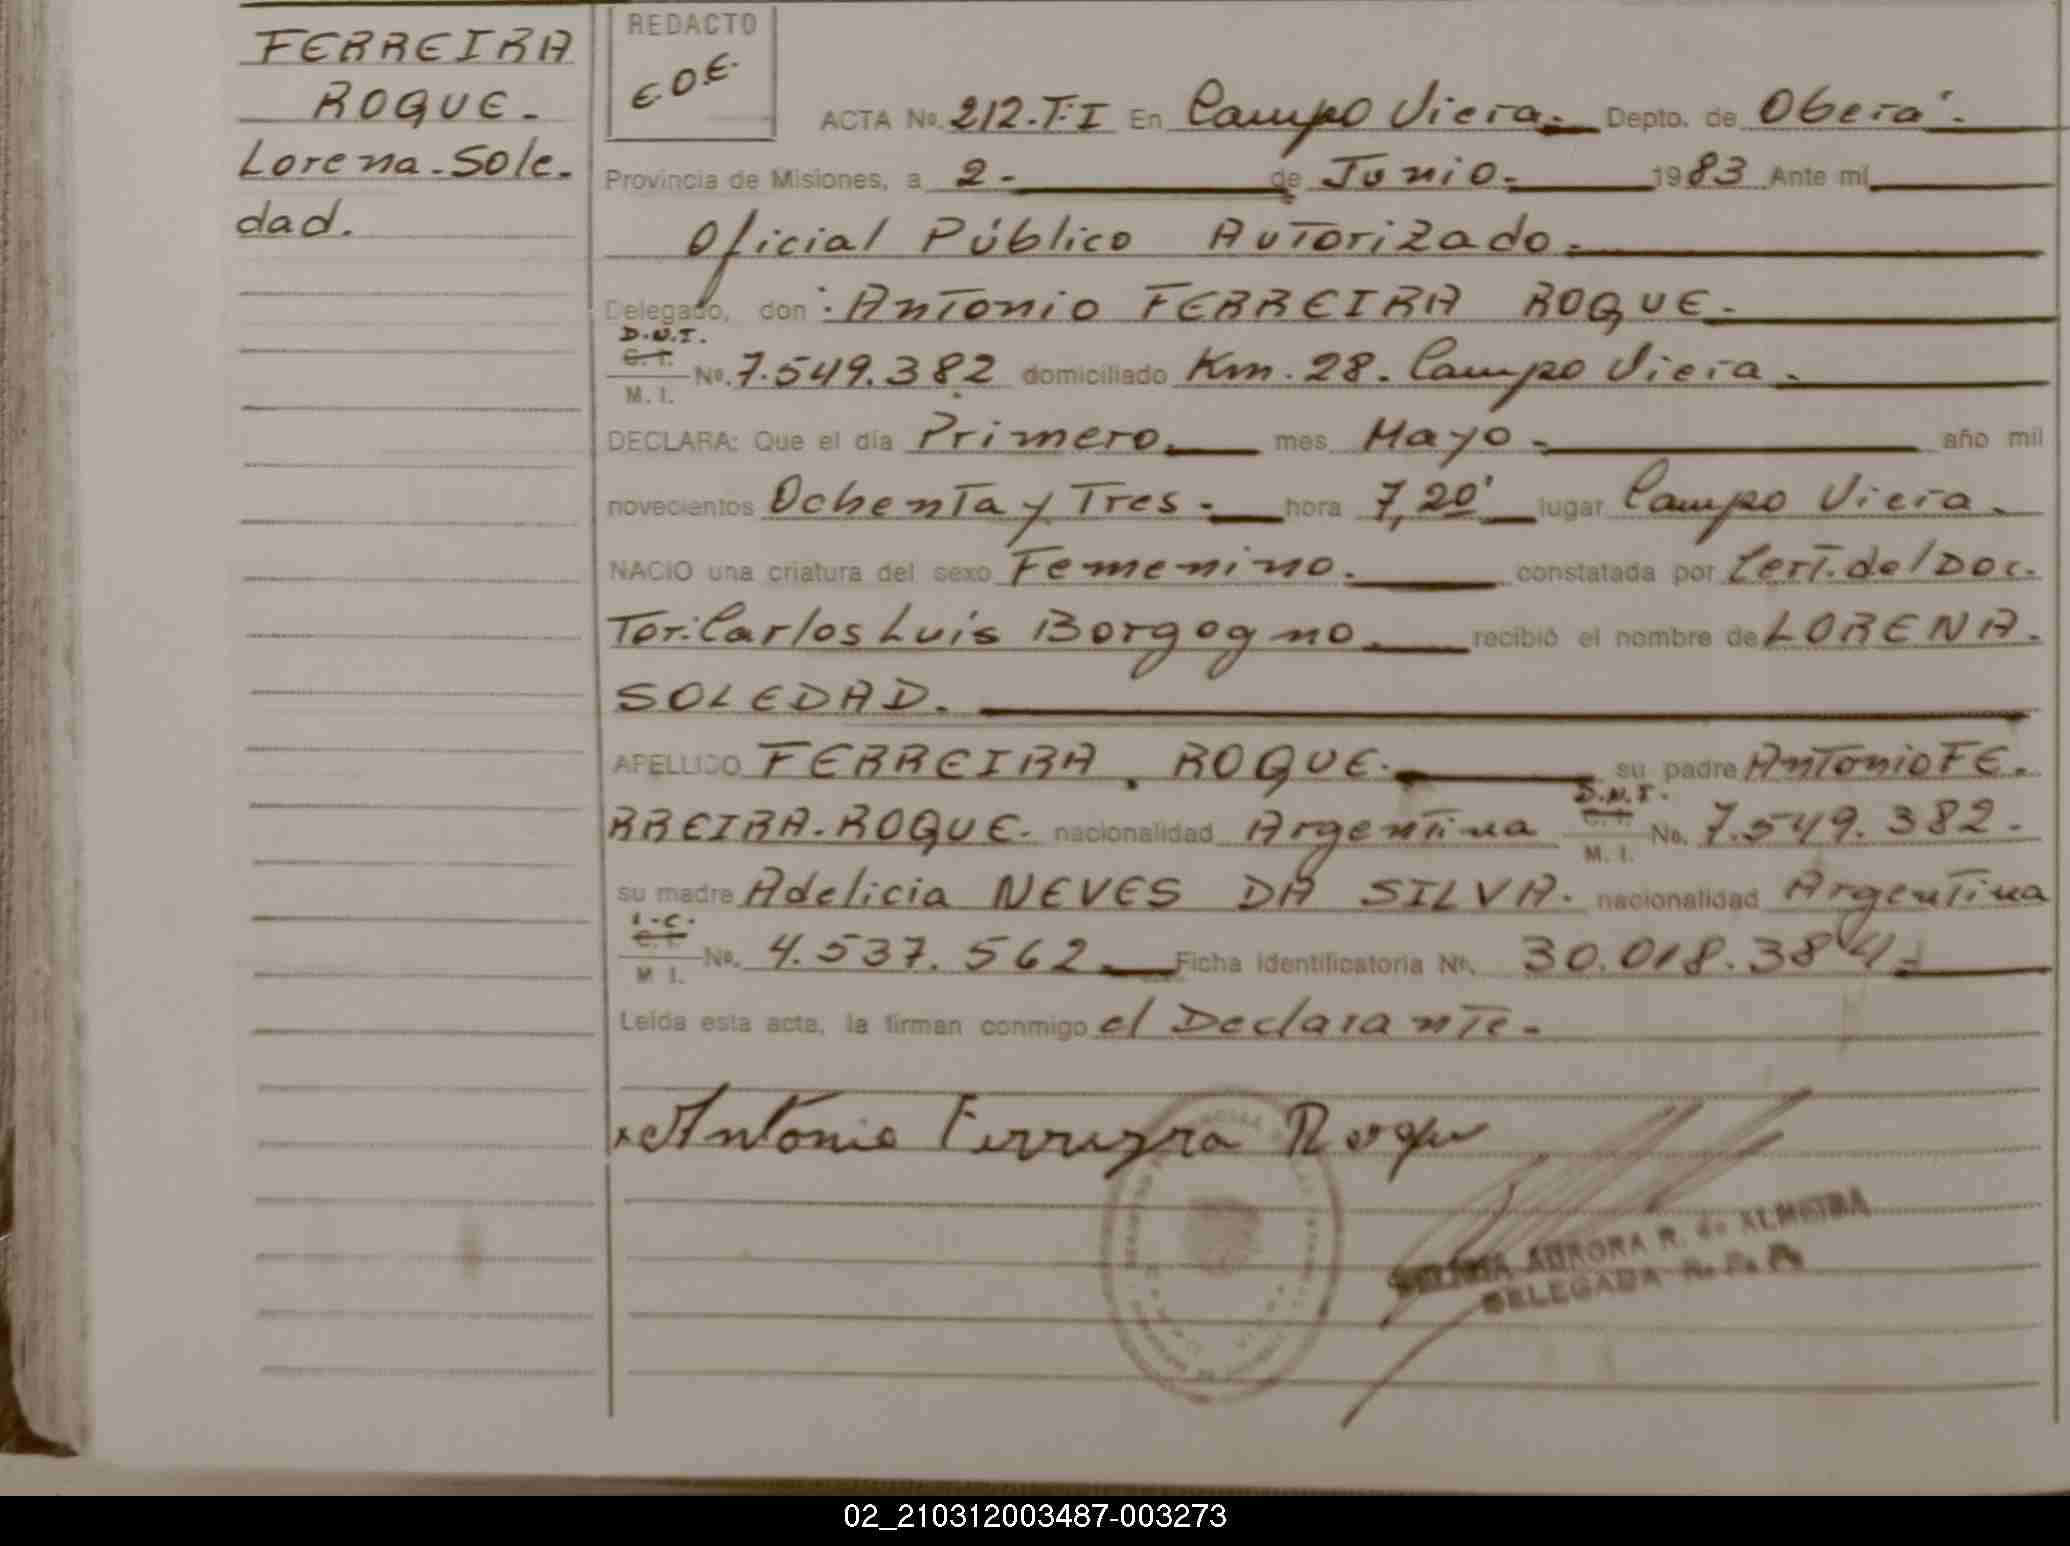 FERREIRA
ROQUE.
Lorena-Sole.
dad.
REDACTO
EOE.
ACTA No. 212.T.I En Campo Viera. Depto. de Oberá.
Provincia de Misiones, a 2. de Junio. 1983 Ante mí
Oficial Público Autorizado.
Delegado, don: Antonio FERREIRA ROQUE.
D.N.I.
C. I. No. 7.549.382 domiciliado Km. 28. Campo Viera.
M. I.
DECLARA: Que el día Primero. mes Mayo. año mil
novecientos Ochenta y Tres. hora 7,20' lugar Campo Viera.
NACIO una criatura del sexo Femenino. constatada por Cert. del Doc.
Tor: Carlos Luis Borgogno. recibió el nombre de LORENA.
SOLEDAD.
APELLIDO FERREIRA. ROQUE. su padre Antonio FE.
D.N.I.
RREIRA. ROQUE. nacionalidad Argentina C. I. No. 7.549.382.
M. I.
su madre Adelicia NEVES DA SILVA. nacionalidad Argentina
L.C.
C. I. No. 4.537.562 Ficha identificatoria No. 30.018.384.
M. I.
Leída esta acta, la firman conmigo el Declarante.
x Antonio Ferreyra Roque
AURORA R. de ALMEIDA
DELEGADA R. P. P.
02_210312003487-003273